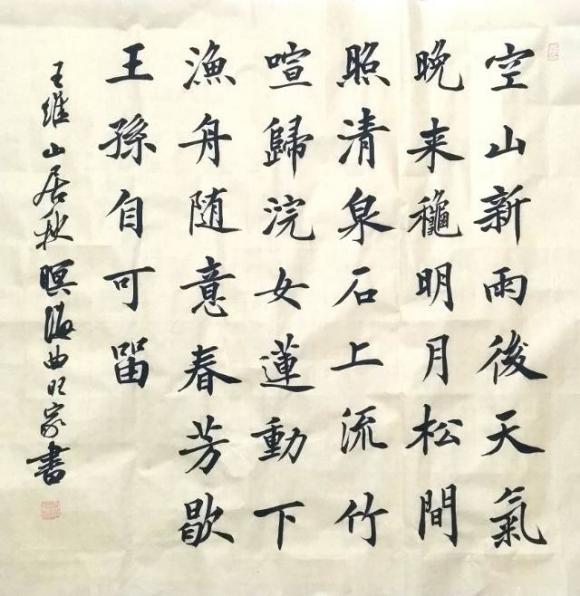 空山新雨後天氣
晚来龝明月松間
照清泉石上流竹
喧歸浣女蓮動下
漁舟随意春芳歇
王孫自可留
王維山居秋暝海曲家書